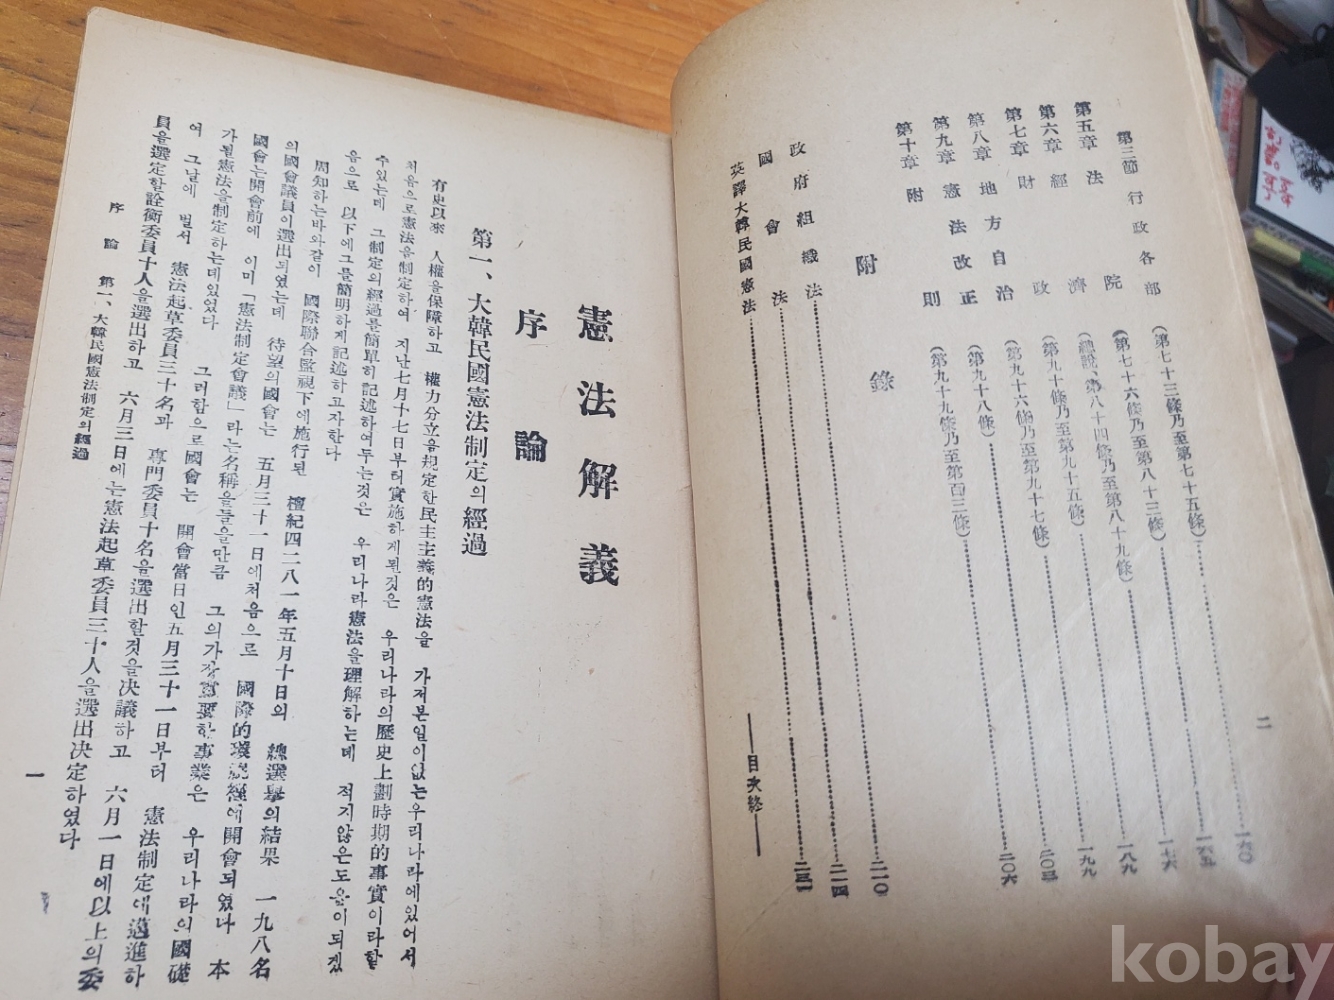 二
第三節 行政各部 (第七十三條乃至第七十五條) 一六〇
第五章 法院 (第七十六條乃至第八十三條) 一六五
第六章 經濟 (總說、第八十四條乃至第八十九條) 一七六
第七章 財政 (第九十條乃至第九十五條) 一八九
第八章 地方自治 (第九十六條乃至第九十七條) 一九九
第九章 憲法改正 (第九十八條) 二〇三
第十章 附則 (第九十九條乃至第百三條) 二〇六
附錄
政府組織法 二一〇
國會法 二一四
英譯大韓民國憲法
――目次終――
憲法解義
序論
第一、大韓民國憲法制定의經過
有史以來 人權을保障하고 權力分立을規定한民主主義的憲法을 가저본일이없는우리나라에있어서
처음으로憲法을制定하여 지난七月十七日부터實施하게된것은 우리나라의歷史上劃時期的事實이라할
수있는데 그制定의經過를簡單히記述하여두는것은 우리나라憲法을理解하는데 적지않은도움이되겠
음으로 以下에그를簡明하게記述하고자한다
周知하는바와같이 國際聯合監視下에施行된 檀紀四二八一年五月十日의 總選擧의結果 一九八名
의國會議員이選出되였는데 待望의國會는 五月三十一日에처음으로 國際的環視裡에開會되였다 本
國會는開會前에 이미「憲法制定會議」라는名稱을들을만큼 그의가장重要한事業은 우리나라의國礎
가될憲法을制定하는데있었다 그러함으로國會는 開會當日인五月三十一日부터 憲法制定에邁進하
여 그날에 벌서 憲法起草委員三十名과 專門委員十名을選出할것을決議하고 六月一日에以上의委
員을選定할詮衡委員十人을選出하고 六月三日에는憲法起草委員三十人을選出決定하였다
序論 第一、大韓民國憲法制定의經過
一
kobay